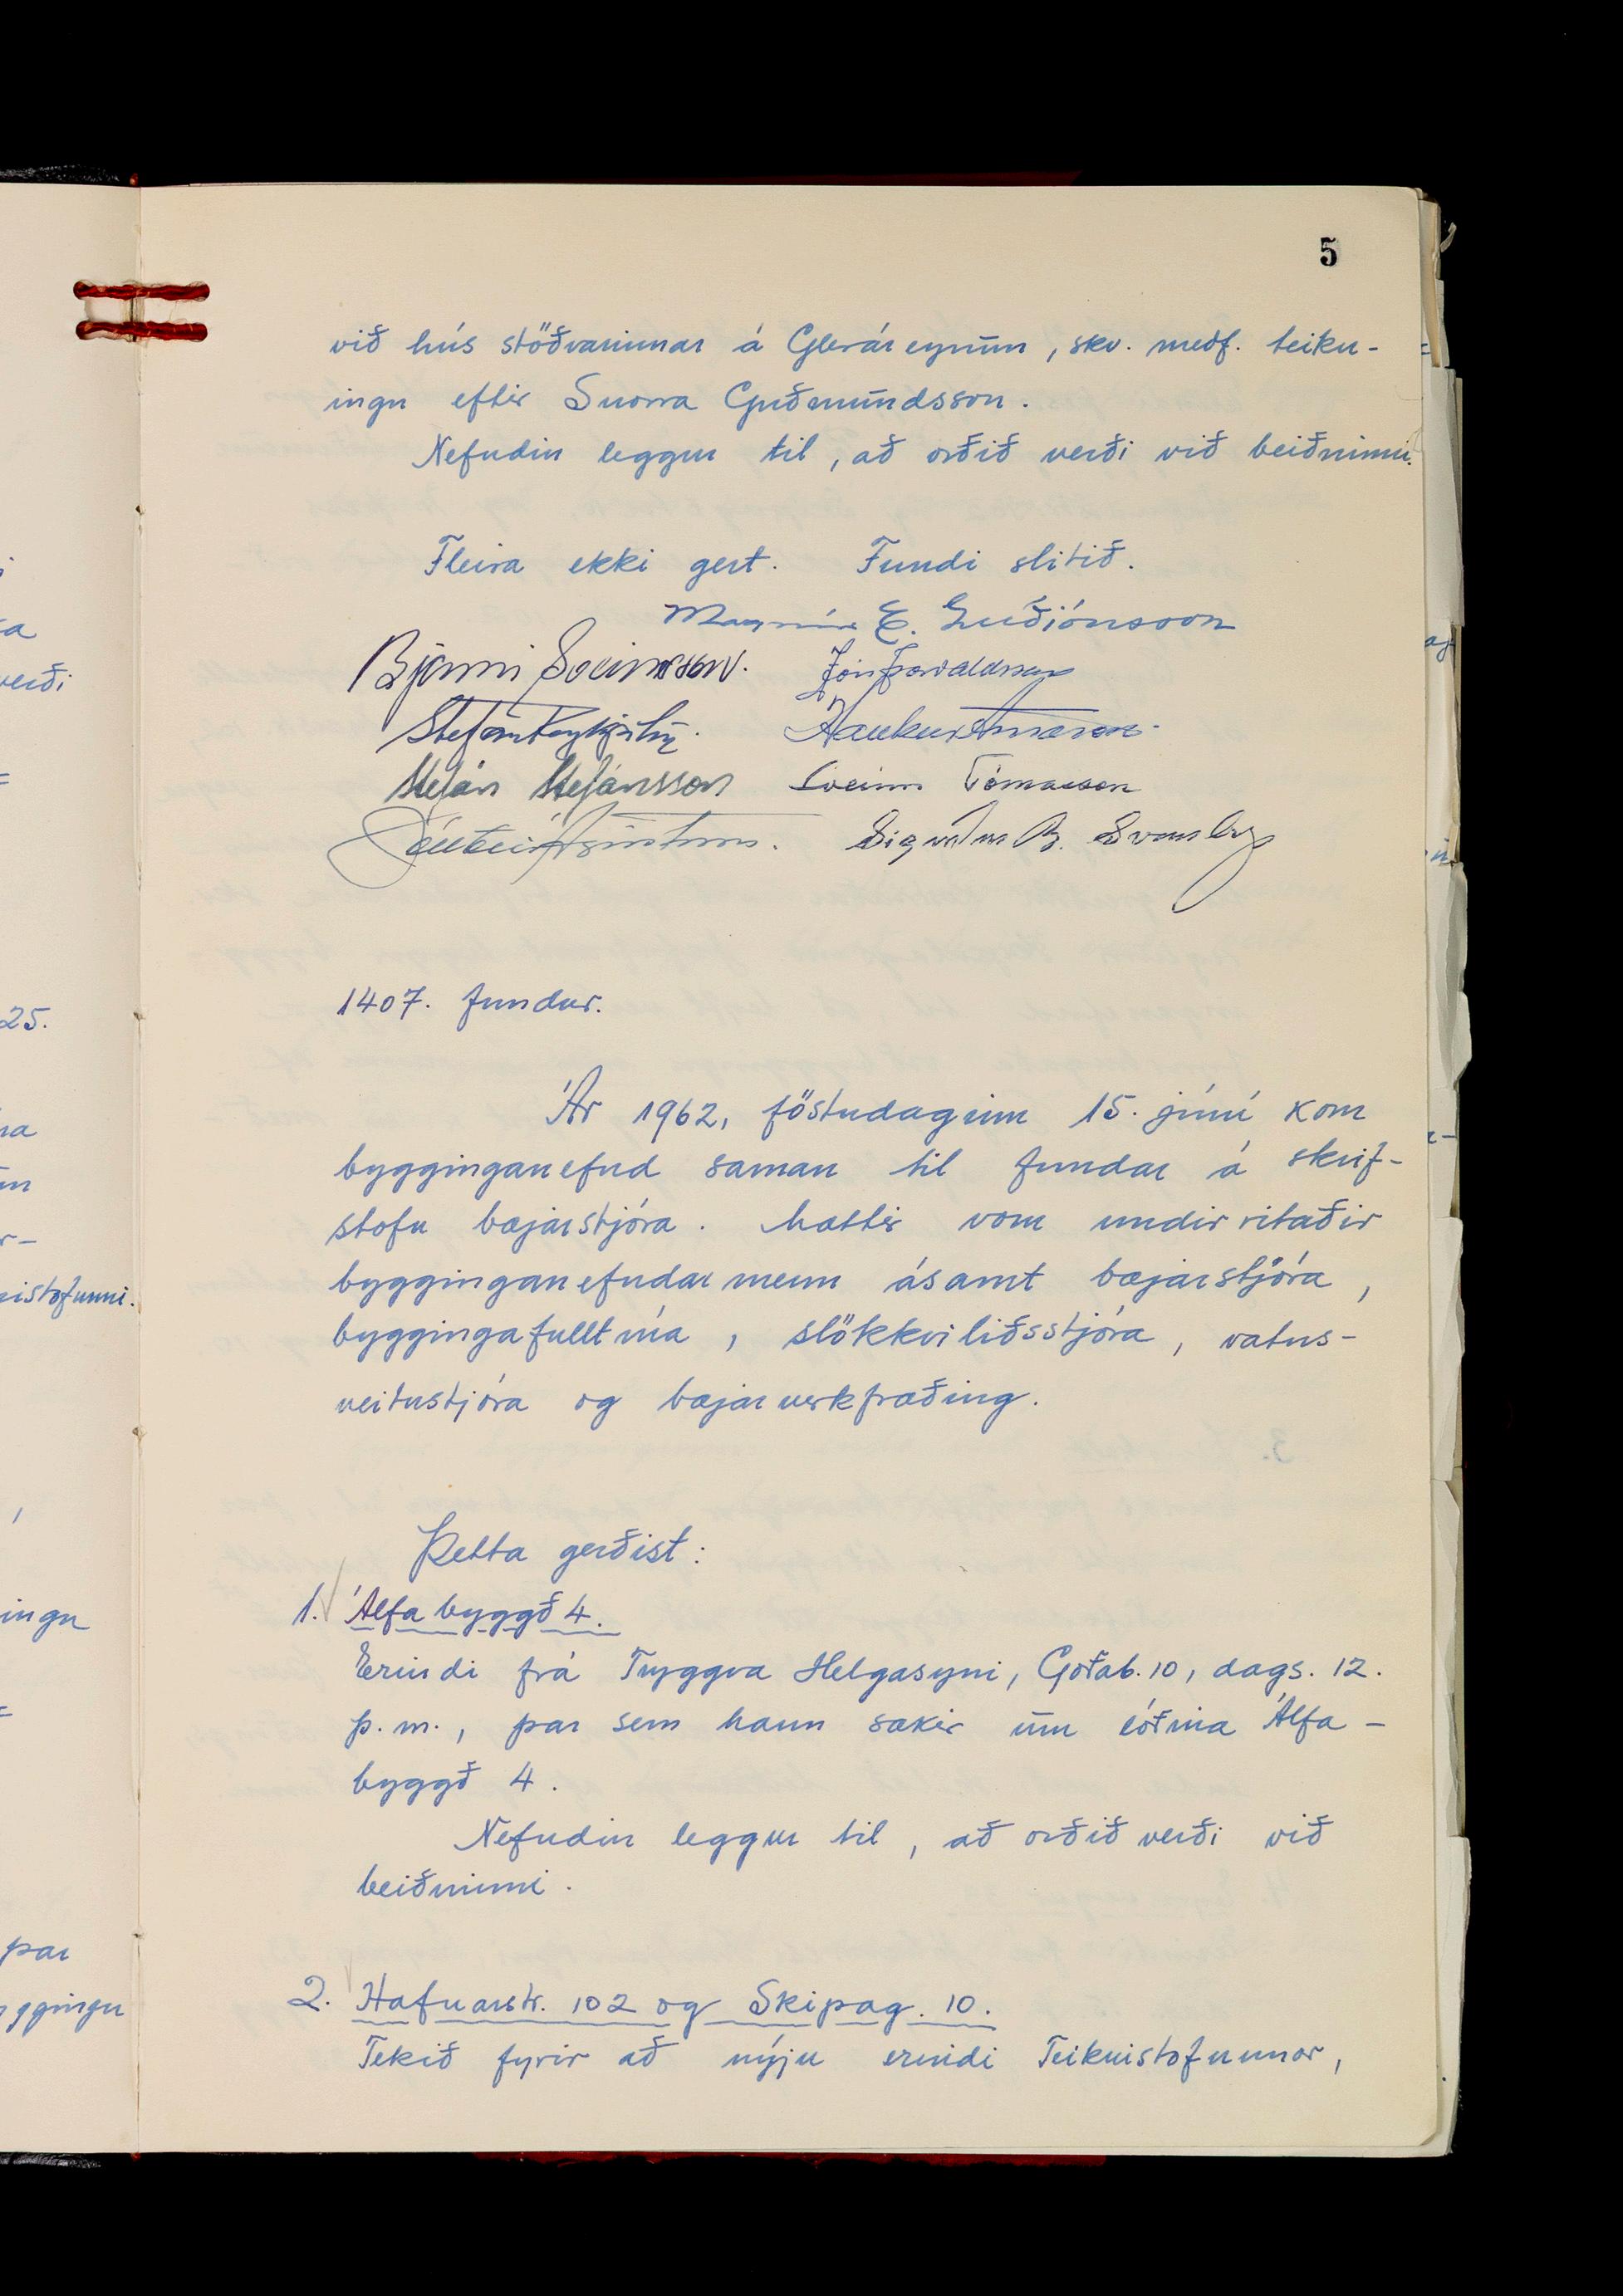 5
við hús stöðvarinnar á Gleráreyrum, skv. meðf. teikn-
ingu eftir Snorra Guðmundsson.
Nefndin leggur til, að orðið verði við beiðninni.
Fleira ekki gert. Fundi slitið.
Magnús E. Guðjónsson
Bjarni Sveinsson. Jón Þorvaldsson
Stefán Reykjalín. Haukur Árnason
Stefán Stefánsson Sveinn Tómasson
Ágústsson. Sigurður B. Svanberg
1407. fundur.
Ár 1962, föstudaginn 15. júní kom
bygginganefnd saman til fundar á skrif-
stofu bæjarstjóra. Mættir vom undirritaðir
bygginganefndarmenn ásamt bæjarstjóra,
byggingafulltrúa, slökkviliðsstjóra, vatns-
veitustjóra og bæjarverkfræðing.
Þetta gerðist:
1. Álfabyggð 4.
Erindi frá Tryggva Helgasyni, Goðab. 10, dags. 12.
þ.m., þar sem hann sækir um lóðina Álfa-
byggð 4.
Nefndin leggur til, að orðið verði við
beiðninni.
2. Hafnarstr. 102 og Skipag. 10.
Tekið fyrir að nýju erindi Teiknistofunnar,
25.
verði
eistofunni.
ingu
þar
ggingu